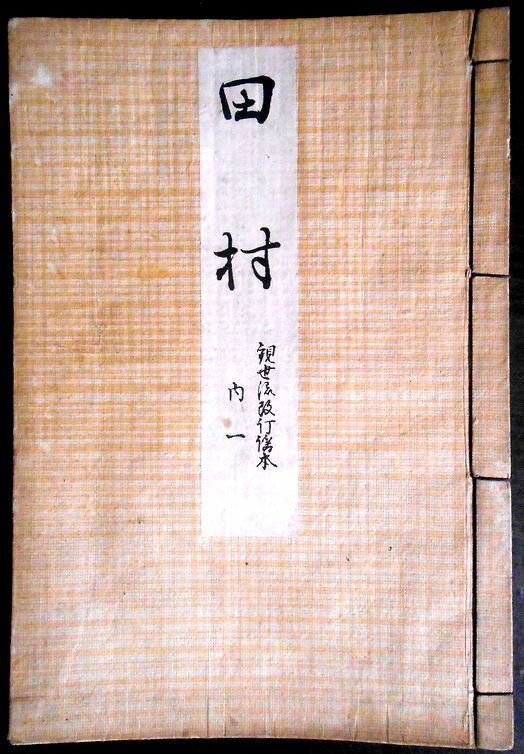 田村
観世流改訂謡本
内一